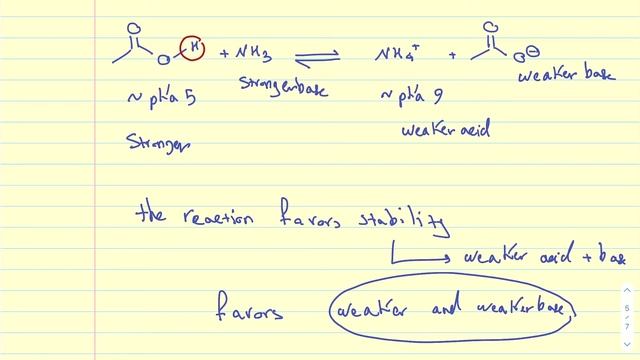 O O H + NH3 ⇌ NH4+ + O O⊖
Stronger base
weaker base
~ pKa 5
~ pKa 9
Stronger
weaker acid
the reaction favors stability
weaker acid + base
favors weaker and weaker base
6
/
7